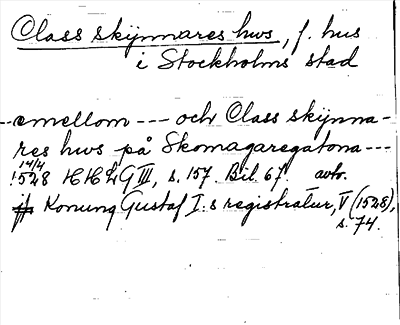 Class skijnnares hws, f. hus
i Stockholms stad
--emellom --- och Class skijnna-
res hws på Skomagaregatona ---
14/4
1528 HHLG III, s. 157. Bil. 67. avtr.
jfr Konung Gustaf I:s registratur, V (1528),
s. 74.